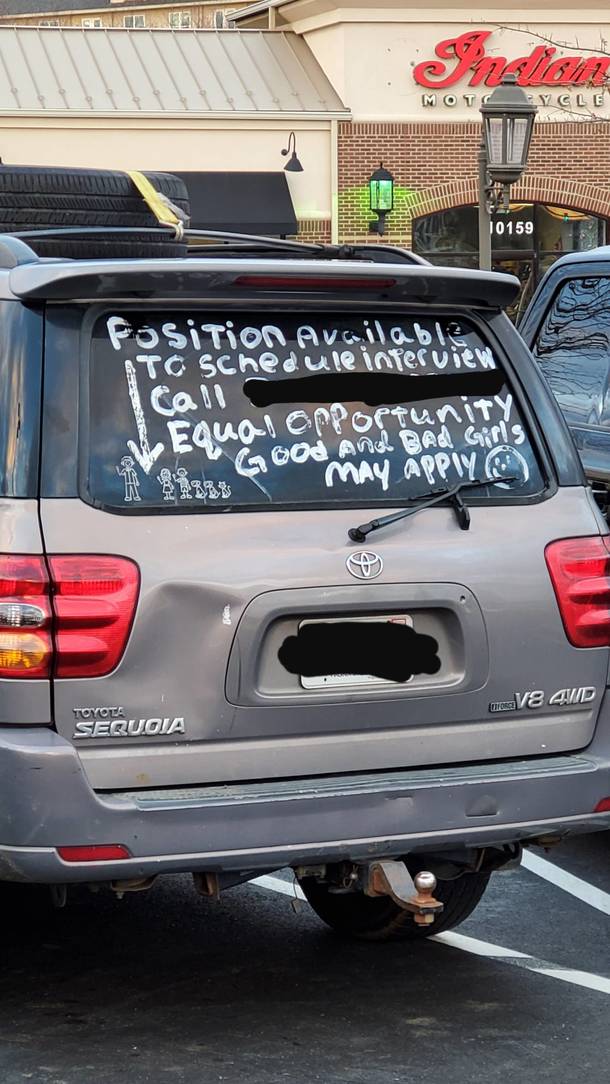 Indian
MOTORCYCLE
10159
Position Available
To schedule interview
Call
Equal opportunity
Good And Bad Girls
MAY APPLY
TOYOTA
SEQUOIA
V8 4WD